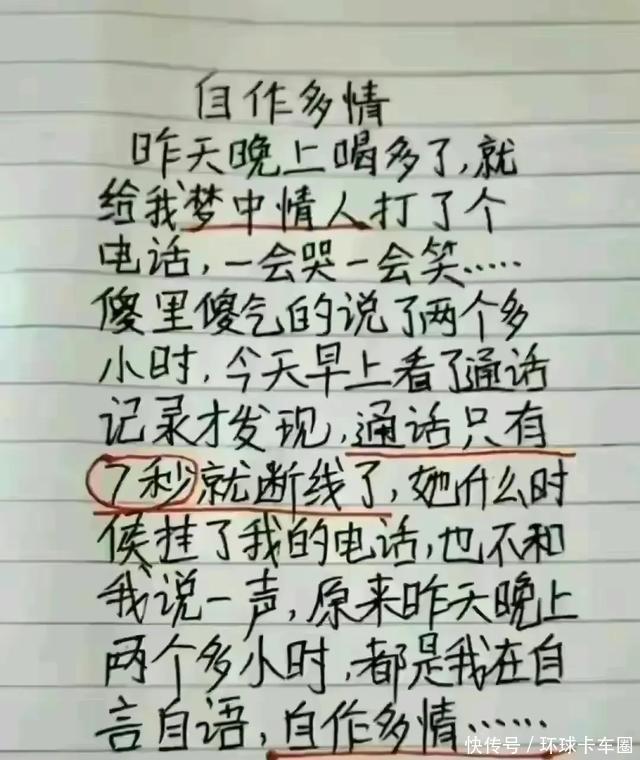 自作多情
昨天晚上喝多了,就
给我梦中情人打了个
电话,一会哭一会笑.....
傻里傻气的说了两个多
小时,今天早上看了通话
记录才发现,通话只有
7秒就断线了,她什么时
侯挂了我的电话,也不和
我说一声,原来昨天晚上
两个多小时,都是我在自
言自语,自作多情……
快传号/环球卡车圈